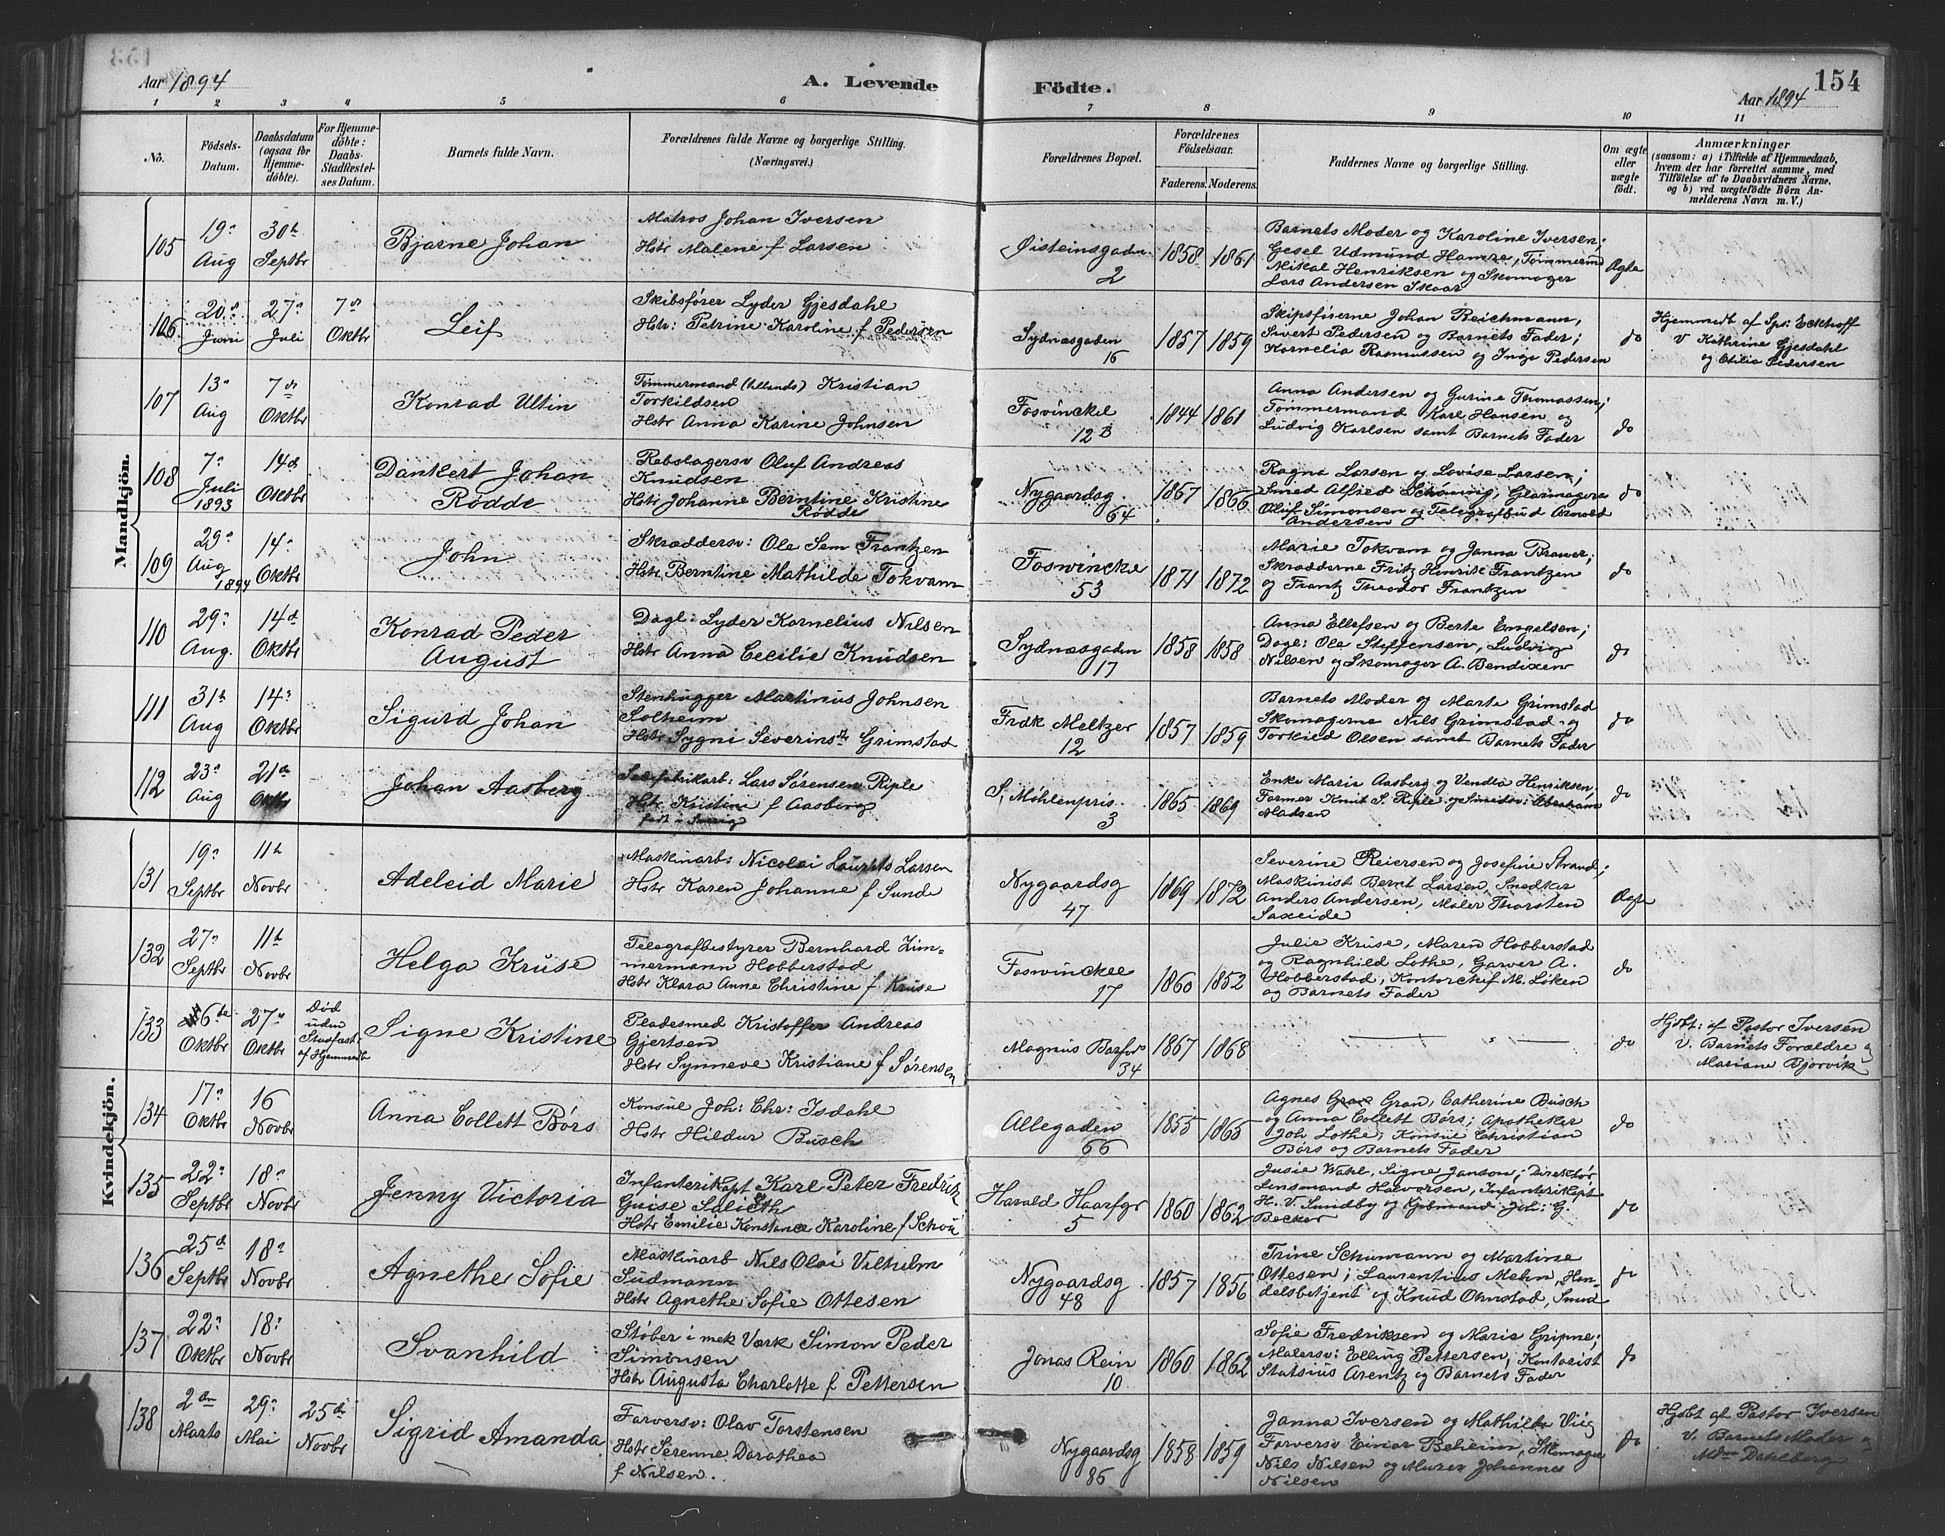 Aar 1894
A. Levende Födte.
154
Aar 1894
1 2 3 4 5 6 7 8 9 10 11
No.
Födsels-Datum.
Daabsdatum (ogsaa for Hjemme-döbte).
For Hjemme-döbte: Daabs-Stadfæstel-ses Datum.
Barnets fulde Navn.
Forældrenes fulde Navne og borgerlige Stilling. (Næringsvei.)
Forældrenes Bopæl.
Forældrenes Födselsaar.
Faderens. Moderens.
Faddernes Navne og borgerlige Stilling.
Om ægte eller uægte födt.
Anmærkninger
(saasom: a) i Tilfælde af Hjemmedaab, hvem der har forrettet samme, med Tilföielse af to Daabsvidners Navne, og b) ved uægtefödte Börn An-melderens Navn m. V.)
Mandkjön.
105 19de Aug 30te Septbr Bjarne Johan
Matros Johan Iversen
Hstr Malene f Larsen
Øisteinsgaden 2 1858 1861
Barnets Moder og Karoline Iversen;
Gesel Udmund Hamre, Tømmermd
Mikal Henriksen og Skomager
Lars Andersen Skaar
Ægte
106 20de Juni 27de Juli 7de Oktbr Leif
Skibsfører Lyder Gjesdahl
Hstr: Petrine Karoline f Pedersen
Sydnæsgaden 16 1857 1859
Skipsførerne Johan Reichmann,
Sivert Pedersen og Barnets Fader;
Kornelia Rasmussen og Inga Pedersen
do
Hjemmedt af Spr: Eckhoff
v Kathrine Gjesdahl
og Otilia Pedersen
107 13de Aug 7de Oktbr Konrad Ultin
Tømmermand Kristian
Torkildsen
Hstr Anna Karine Johnsen
Fosvinckel 12 B 1844 1861
Anna Andersen og Gurine Thomassen;
Tømmermand Karl Hansen og
Ludvig Karlsen samt Barnets Fader
do
108 7de Juli 1893 14de Oktbr Dankert Johan Rødde
Rebslagersv Oluf Andreas
Knudsen
Hstr Johanne Berntine Kristine
Rødde
Nygaardsg. 64 1867 1866
Ragna Larsen og Lovise Larsen;
Smed Alfred Schøning, Glarmager
Oluf Simonsen og Telegrafbud Arnold
Andersen
do
109 29de Aug 1894 14de Oktbr John
Skræddersv: Ole Sem Frantzen
Hstr Berntine Mathilde Tokvam
Foswincke 53 1871 1872
Marie Tokvam og Janna Brawer;
Skrædderne Fritz Henrik Frantzen
og Frantz Theodor Frantzen
do
110 29de Aug. 14de Oktbr Konrad Peder August
Dagl: Lyder Kornelius Nilsen
Hstr Anna Cecilie Knudsen
Sydnæsgaden 17 1858 1858
Anna Ellefsen og Berte Engelsen;
Dagl: Ole Steffensen, Ludvig
Nilsen og Skomager A. Bendixen
do
111 31te Aug 14de Oktbr Sigurd Johan
Stenhugger Martinus Johnsen
Solheim
Hstr Sygni Severinsdt Grimstad
Fredk Meltzer 12 1857 1859
Barnets Moder og Marta Grimstad
Skomagerne Nils Grimstad og
Torkild Olsen samt Barnets Fader
do
112 23de Aug 21de Oktbr Johan Aasberg
Lars Sørensen Riple
Hstr Kristine f Aasberg
født i Sverig
S, Möhlenpris. 3 1865 1869
Enke Marie Aasberg og Vendla Henriksen,
Former Knut S. Riple og Smedsv: Abraham
Madsen
do
Kvindekjön.
131 19de Septbr 11te Novbr Adeleid Marie
Maskinarb: Nicolai Laurits Larsen
Hstr Karen Johanne f Sunde
Nygaardsg 47 1869 1872
Severine Reiersen og Josefine Strand;
Maskinist Bernt Larsen, Snedker
Anders Andersen, Maler Thorsten
Saxeide
Ægte
132 27de Septbr 11te Novbr Helga Kruse
Telegrafbestyrer Bernhard Zim-
mermann Hobberstad
Hstr Klara Anne Christine f Kruse
Foswinckel 17 1860 1852
Julie Kruse, Maren Hobberstad
og Ragnhild Lothe, Garver A.
Hobberstad, Kontorchef M. Løken
og Barnets Fader
do
133 6te Oktbr 27de Oktbr
Død uden Stadfæst af Hjemmedt
Signe Kristine
Pladesmed Kristoffer Andreas
Gjertsen
Hstr Synneve Kristiane f Sørensen
Magnus Barfod 34 1867 1868
do
Hjdbt: af Pastor Iversen
v. Barnets Forældre og
Mariane Bjørvik
134 17de Oktbr 16 Novbr Anna Collett Børs
Konsul Joh: Chr: Isdahl
Hstr Hildur Busch
Allegaden 66 1855 1865
Agnes Gran, Catherine Busch
og Anna Collett Børs; Apotheker
Joh. Lothe, Konsul Christian
Børs og Barnets Fader
do
135 22de Septbr 18de Novbr Jenny Victoria
Infanterikapt Karl Peter Fredrik
Guise
Hstr Emilie Konstance Karoline f Schou
Harald Haarfgr 5 1860 1862
Susie Wahl, Signe Janson; Direktør
Linsmand Halvorsen, Infanterikapt
H. V. Sundby og Kjøbmand Joh: G.
Becker
do
136 25de Septbr 18de Novbr Agnethe Sofie
Maskinarb Nils Olai Vilhelm
Sudmann
Hstr Agnethe Sofie Ottesen
Nygaardsg 48 1857 1856
Trine Schumann og Martine
Ottesen; Laurentius Mehn, Han-
delsbetjent og Knud Ornstad, Smed
do
137 22de Oktbr 18de Novbr Svanhild
Støber i mek Værk Simon Peder
Simonsen
Hstr Augusta Charlotte f Pettersen
Jonas Rein 10 1860 1862
Sofie Fredriksen og Marie Gripne;
Malersv: Elling Pettersen, Kontorist
Statsius Arentz og Barnets Fader
do
138 2den Marts 29de Mai 25de Novbr Sigrid Amanda
Farversv: Olav Torstensen
Hstr Serenne Dorothea
f Nilsen.
Nygaardsg 86 1858 1859
Janna Iversen og Mathilke Viig
Farversv Einar Beheim, Skomager
Nils Nilsen og Murer Johannes
Nilsen
do
Hjdbt af Pastor Iversen
v. Barnets Moder og
Mdm Dahlberg